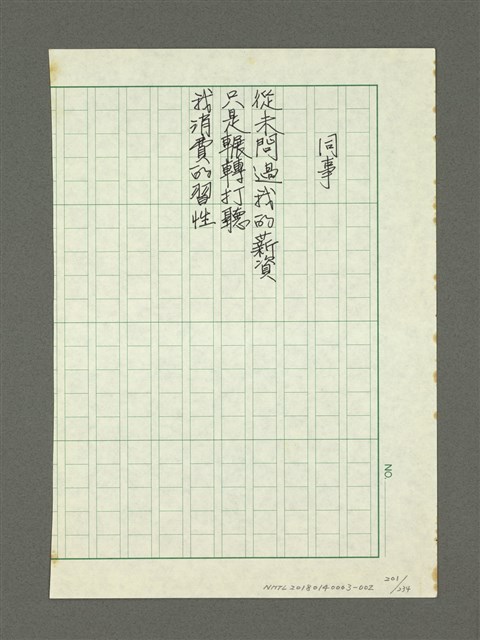 同事
從未問過我的薪資
只是輾轉打聽
我消費的習性
NO.
NMTL20180140003-002
201/234